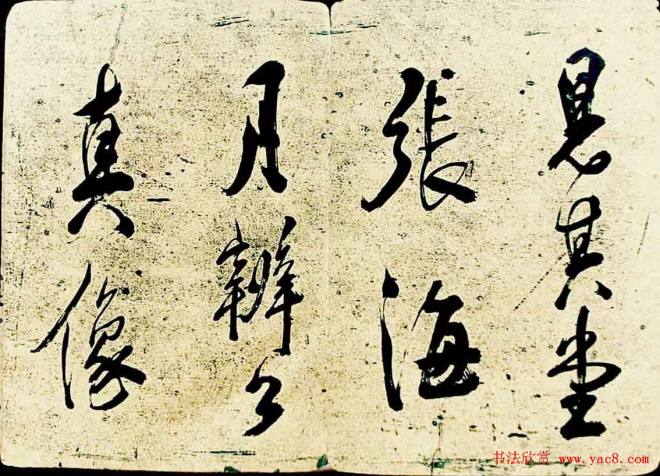 見其堂
張海
月辨公
真像
书法欣赏 www.yac8.com